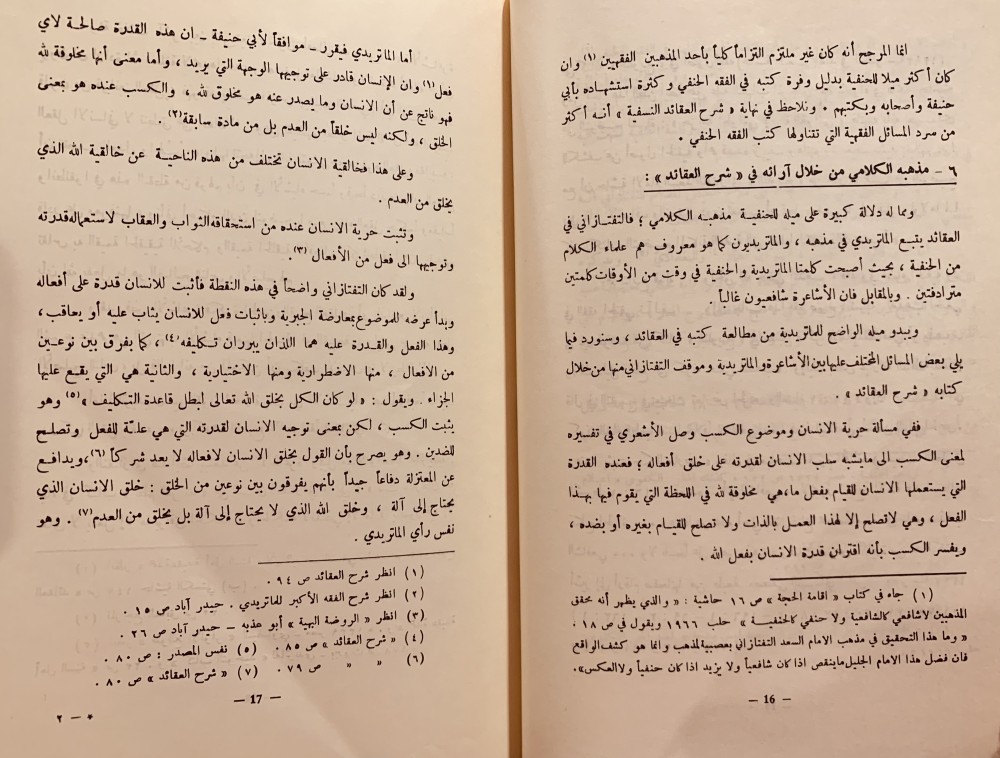 انما المرجح أنه كان غير ملتزم التزاماً كلياً بأحد المذهبين الفقهيين (١) وان
كان أكثر ميلا للحنفية بدليل وفرة كتبه في الفقه الحنفي وكثرة استشهاده بأبي
حنيفة وأصحابه وبكتبهم . ونلاحظ في نهاية « شرح العقائد النسفية » أنه أكثر
من سرد المسائل الفقهية التي تتناولها كتب الفقه الحنفي .
٦ - مذهبه الكلامي من خلال آرائه في « شرح العقائد » :
ومما له دلالة كبيرة على ميله للحنفية مذهبه الكلامي ؛ فالتفتازاني في
العقائد يتبع الماتريدي في مذهبه ، والماتريديون كما هو معروف هم علماء الكلام
من الحنفية ، بحيث أصبحت كلمتا الماتريدية والحنفية في وقت من الأوقات كلمتين
مترادفتين . وبالمقابل فان الأشاعرة شافعيون غالباً .
ويبدو ميله الواضح للماتريدية من مطالعة كتبه في العقائد ، وسنورد فيما
يلي بعض المسائل المختلف عليها بين الأشاعرة والماتريدية وموقف التفتازاني منها من خلال
كتابه « شرح العقائد » .
ففي مسألة حرية الانسان وموضوع الكسب وصل الأشعري في تفسيره
لمعنى الكسب الى ما يشبه سلب الانسان لقدرته على خلق أفعاله ؛ فعنده القدرة
التي يستعملها الانسان للقيام بفعل ما ، هي مخلوقة لله في اللحظة التي يقوم فيها بهذا
الفعل ، وهي لا تصلح إلا لهذا العمل بالذات ولا تصلح للقيام بغيره أو بضده ،
ويفسر الكسب بأنه اقتران قدرة الانسان بفعل الله .
(١) جاء في كتاب « اقامة الحجة » ص ١٦ حاشية : « والذي يظهر أنه محقق
المذهبين لا شافعي كالشافعية ولا حنفي كالحنفية » حلب ١٩٦٦ ويقول في ص ١٨ .
« وما هذا التحقيق في مذهب الامام السعد التفتازاني بعصبية للمذهب وانما هو كشف الواقع
فان فضل هذا الامام الجليل ما ينقص اذا كان شافعياً ولا يزيد اذا كان حنفياً ولا العكس».
— 16 —
أما الماتريدي فيقرر - موافقاً لأبي حنيفة - ان هذه القدرة صالحة لاي
فعل (١) وان الإنسان قادر على توجيهها الوجهة التي يريد ، وأما معنى أنها مخلوقة لله
فهو ناتج عن أن الانسان وما يصدر عنه هو مخلوق لله ، والكسب عنده هو بمعنى
الخلق ، ولكنه ليس خلقاً من العدم بل من مادة سابقة (٢) .
وعلى هذا فخالقية الانسان تختلف من هذه الناحية عن خالقية الله الذي
يخلق من العدم .
وتثبت حرية الانسان عنده من استحقاقه الثواب والعقاب لاستعماله قدرته
وتوجيهها الى فعل من الأفعال (٣) .
ولقد كان التفتازاني واضحاً في هذه النقطة فأثبت للانسان قدرة على أفعاله
وبدأ عرضه للموضوع بمعارضة الجبرية وباثبات فعل للانسان يثاب عليه أو يعاقب ،
وهذا الفعل والقدرة عليه هما اللذان يبرران تكليفه (٤) ، كما يفرق بين نوعين
من الافعال ، منها الاضطرارية ومنها الاختيارية ، والثانية هي التي يقع عليها
الجزاء . ويقول : « لو كان الكل بخلق الله تعالى لبطل قاعدة التكليف » (٥) وهو
يثبت الكسب ، لكن بمعنى توجيه الانسان لقدرته التي هي علة للفعل وتصلح
للضدين . وهو يصرح بأن القول بخلق الانسان لافعاله لا يعد شركاً (٦) ، ويدافع
عن المعتزلة دفاعاً جيداً بأنهم يفرقون بين نوعين من الخلق : خلق الانسان الذي
يحتاج إلى آلة ، وخلق الله الذي لا يحتاج إلى آلة بل يخلق من العدم (٧) . وهو
نفس رأي الماتريدي .
(١) انظر شرح العقائد ص ٩٤ .
(٢) انظر شرح الفقه الأكبر للماتريدي . حيدر آباد ص ١٥ .
(٣) انظر « الروضة البهية » أبو عذبه - حيدر آباد ص ٢٦ .
(٤) « شرح العقائد » ص ٨٥ . (٥) نفس المصدر : ص ٨٠ .
(٦) « « « ص ٧٩ . (٧) « شرح العقائد » ص ٨٠ .
— 17 —
* - ٢